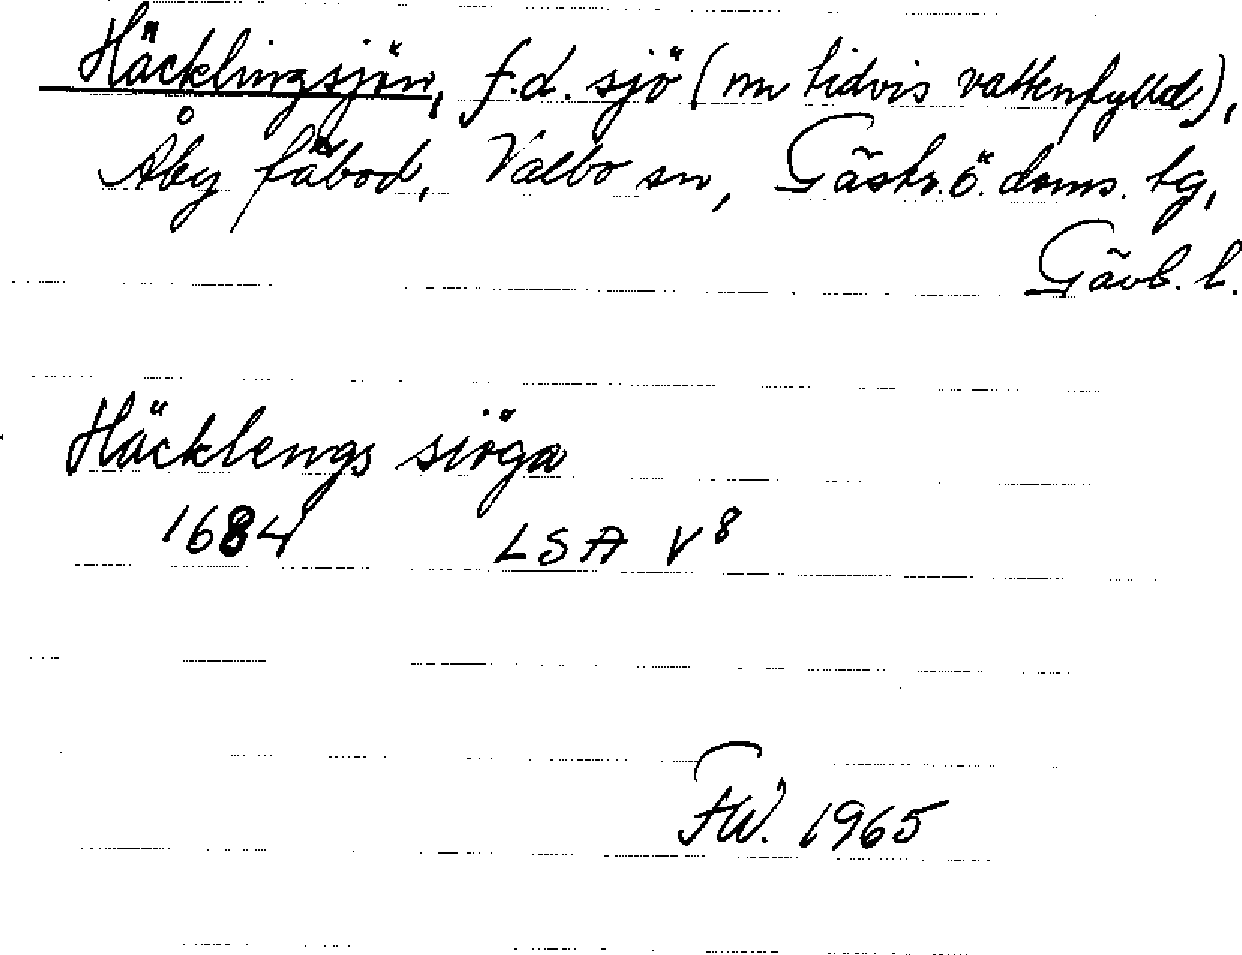 Häcklingsjön, f.d. sjö (nu tidvis vattenfylld),
Åby fäbod, Valbo sn, Gästr. ö. doms. tg,
Gävb. l.
Häcklengs siöga
1684 LSA V8
FW. 1965